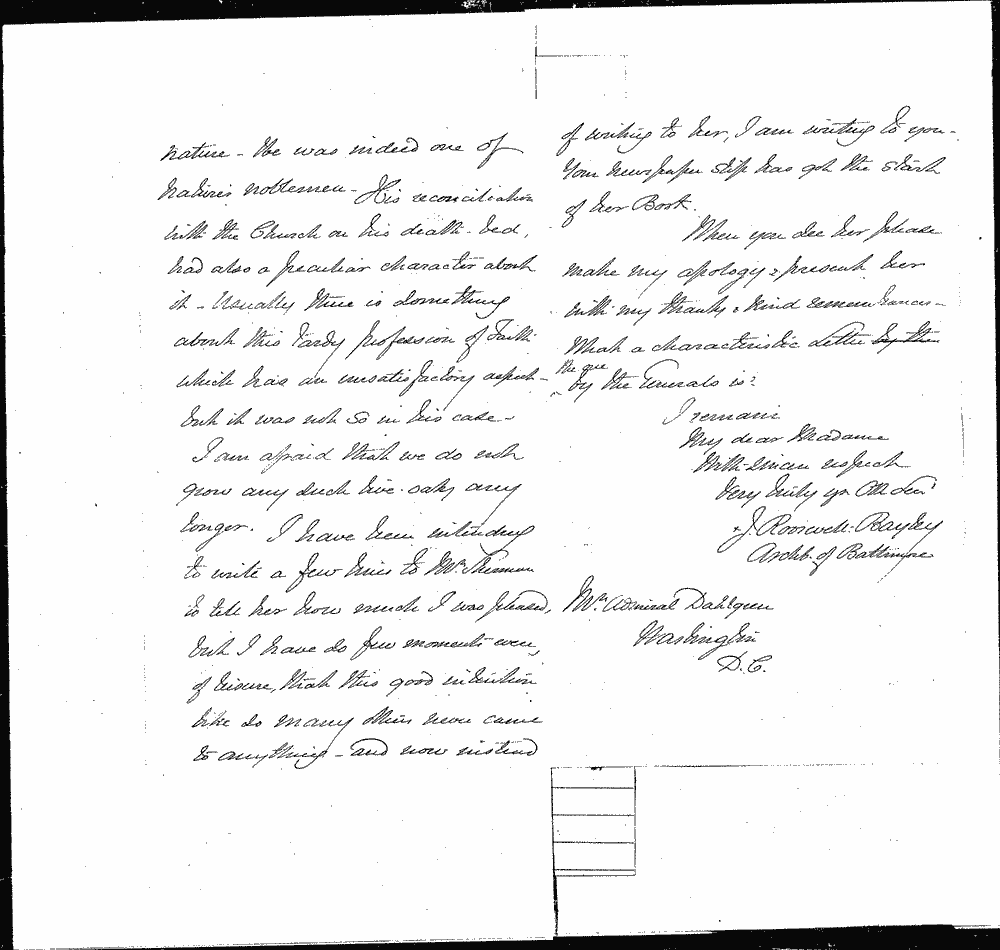 nature - He was indeed one of
nature's noblemen - His reconciliation
with the Church on his death-bed,
had also a peculiar character about
it - Usually there is something
about this tardy profession of Faith
which has an unsatisfactory aspect -
but it was not so in his case -
I am afraid that we do not
grow any such live-oaks any
longer. I have been intending
to write a few lines to Mrs Sherman
to tell her how much I was pleased,
but I have so few moments even,
of leisure, that this good intention
like so many others never came
to anything - and now instead
of writing to her, I am writing to you -
Your newspaper slip has got the start
of her Book.
When you see her please
make my apology & present her
with my thanks & kind remembrances -
What a characteristic letter by the
by the Generals is?
I remain
My dear Madame
With sincere respect
Very truly yr Obt Servt
+ J. Roosevelt Bayley
Archb. of Baltimore
Mrs Admiral Dahlgren
Washington
D.C.